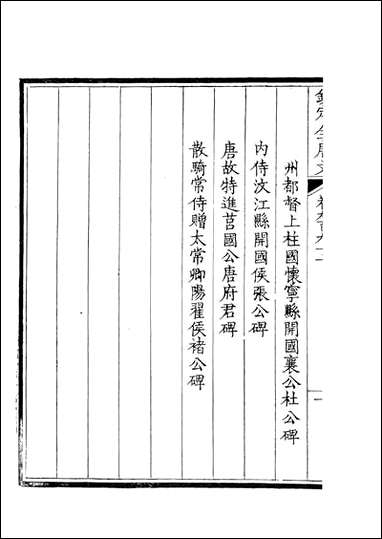 州都督上柱國懷寧縣開國襄公杜公碑
内侍汶江縣開國侯張公碑
唐故特進莒國公唐府君碑
散騎常侍贈太常卿陽翟侯褚公碑